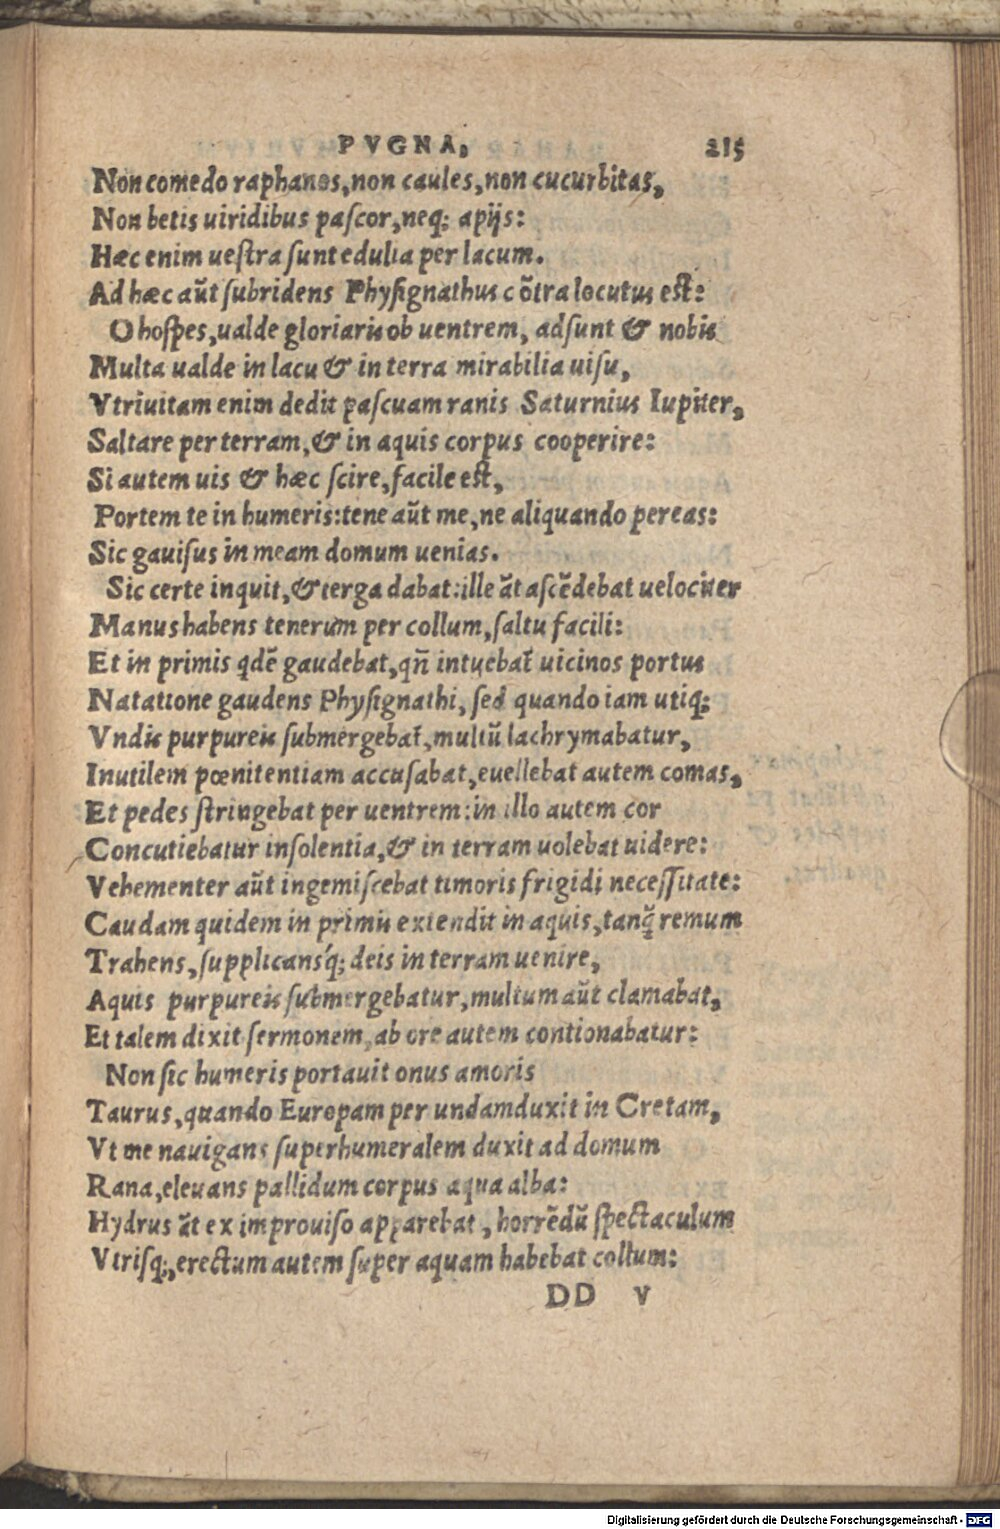 PVGNA, 215
Non comedo raphanos, non caules, non cucurbitas,
Non betis uiridibus paſcor, neq; apijs:
Hæc enim ueſtra ſunt edulia per lacum.
Ad hæc aũt ſubridens Phyſignathus cõtra locutus eſt:
O hoſpes, ualde gloriaris ob uentrem, adſunt & nobis
Multa ualde in lacu & in terra mirabilia uiſu,
Vtriuitam enim dedit paſcuam ranis Saturnius Iupiter,
Saltare per terram, & in aquis corpus cooperire:
Si autem uis & hæc ſcire, facile eſt,
Portem te in humeris: tene aũt me, ne aliquando pereas:
Sic gauiſus in meam domum uenias.
Sic certe inquit, & terga dabat: ille āt aſcẽdebat uelociter
Manus habens tenerum per collum, ſaltu facili:
Et in primis qdẽ gaudebat, qñ intuebat̃ uicinos portus
Natatione gaudens Phyſignathi, ſed quando iam utiq;
Vndis purpureis ſubmergebat̃, multũ lachrymabatur,
Inutilem pœnitentiam accuſabat, euellebat autem comas,
Et pedes ſtringebat per uentrem: in illo autem cor
Concutiebatur inſolentia, & in terram uolebat uidere:
Vehementer aũt ingemiſcebat timoris frigidi neceſſitate:
Caudam quidem in primis extendit in aquis, tanq̃ remum
Trahens, ſupplicansq́; deis in terram uenire,
Aquis purpureis ſubmergebatur, multum aũt clamabat,
Et talem dixit ſermonem, ab ore autem contionabatur:
Non ſic humeris portauit onus amoris
Taurus, quando Europam per undam duxit in Cretam,
Vt me nauigans ſuperhumeralem duxit ad domum
Rana, eleuans pallidum corpus aqua alba:
Hydrus āt ex improuiſo apparebat, horrẽdũ ſpectaculum
Vtriſq;, erectum autem ſuper aquam habebat collum:
DD v
Digitalisierung gefördert durch die Deutsche Forschungsgemeinschaft - DFG